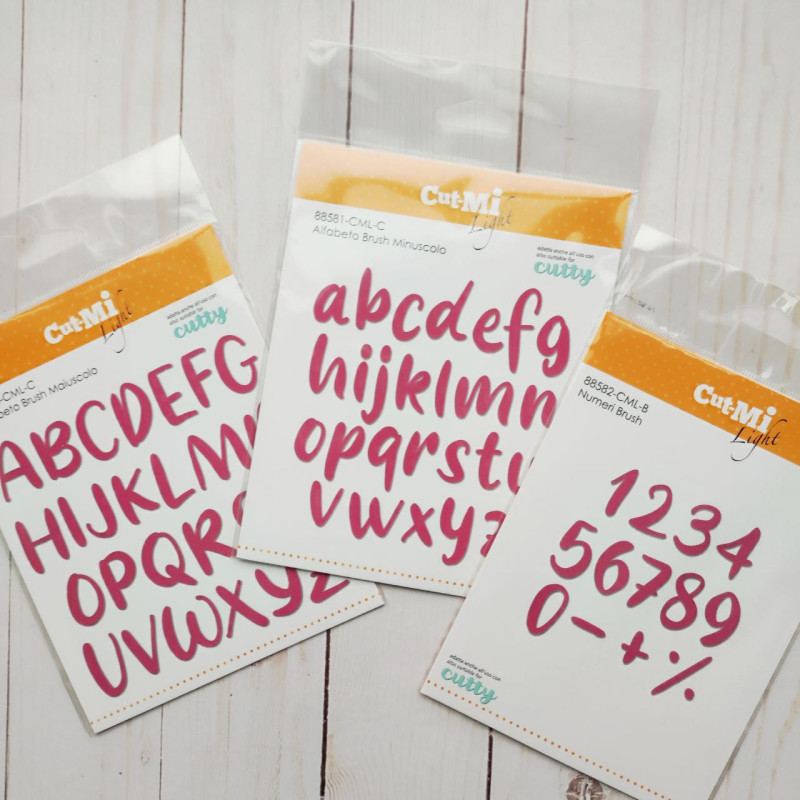 Cut-Mi
Light
-CML-C
beto Brush Maiuscolo
adatta anche all'uso con
also suitable for
cutty
ABCDEFG
HIJKLM
OPQR
UVWXYZ
Cut-Mi
Light
88581-CML-C
Alfabeto Brush Minuscolo
adatta anche all'uso con
also suitable for
cutty
abcdefg
hijklmn
opqrstu
vwxyz
Cut-Mi
Light
88582-CML-B
Numeri Brush
1234
56789
0-+%
adatta anche all'uso con
also suitable for
cutty